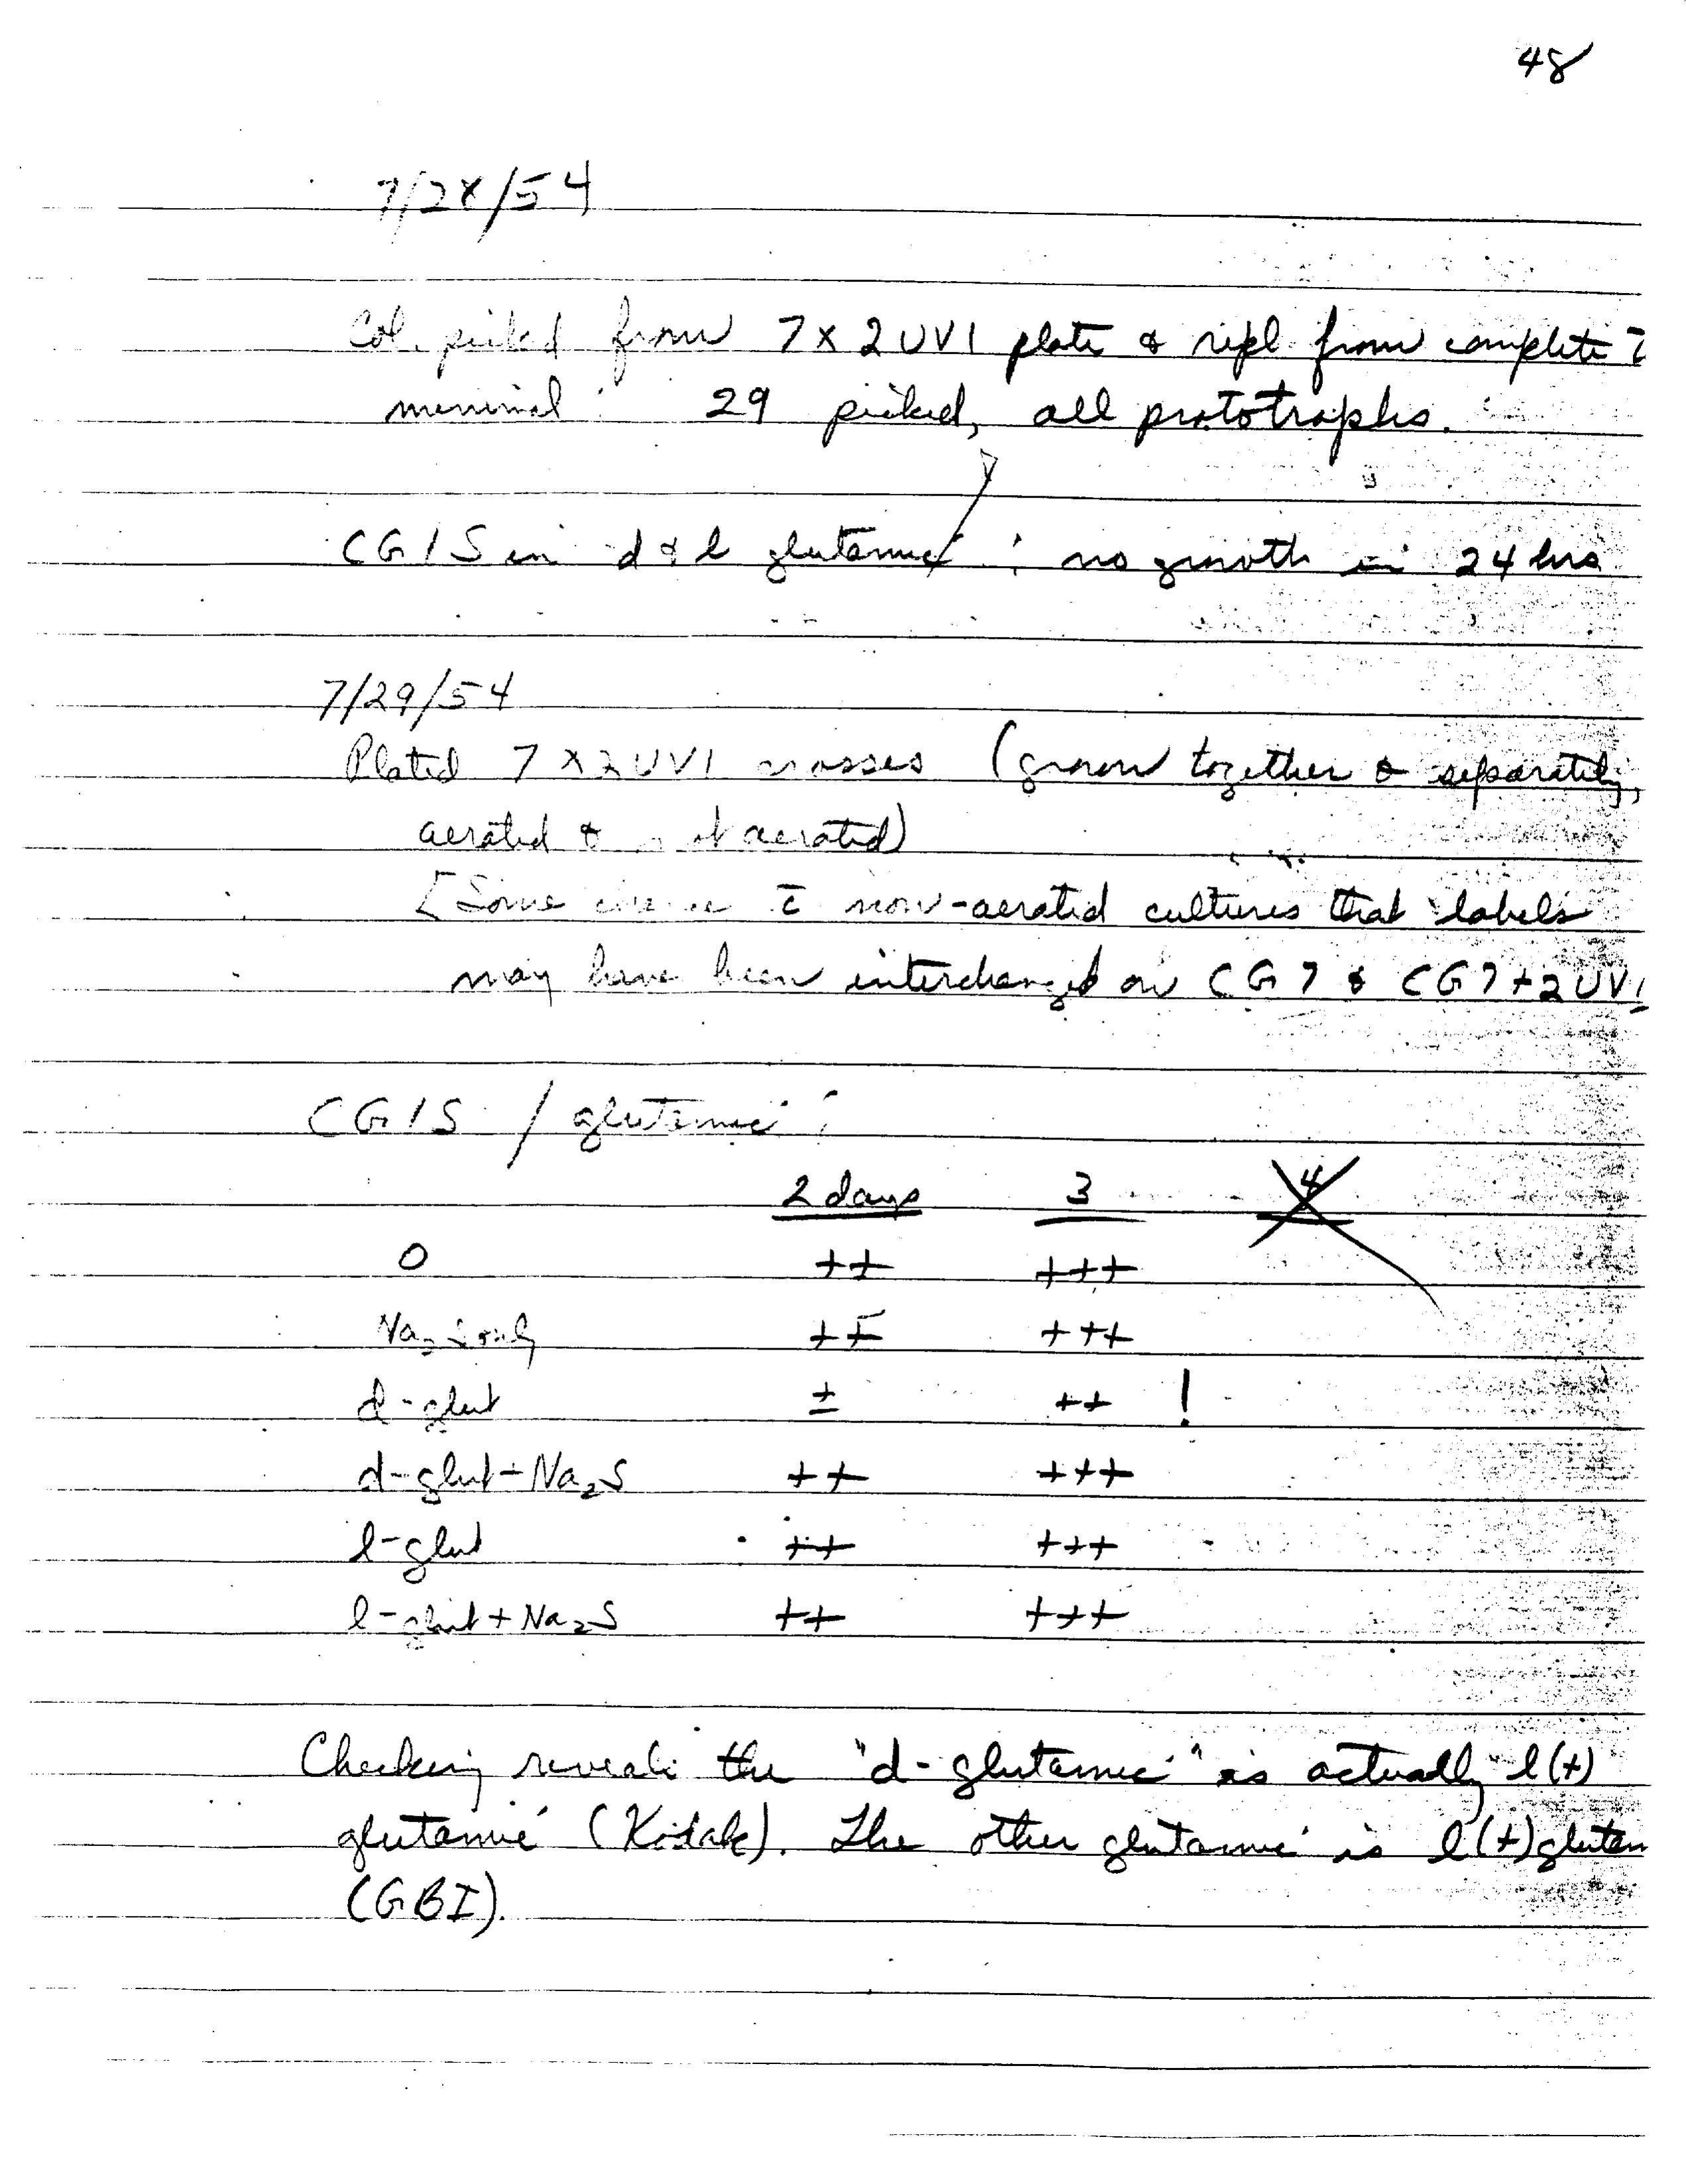 48
7/28/54
Col. picked from 7 x 2UV1 plate & repl. from complete
minimal: 29 picked, all prototrophs.
CG15 in d & l glutamic: no growth in 24 hrs
7/29/54
Plated 7 x 2UV1 crosses (grown together & separately,
aerated & not aerated)
[Some chance c̄ non-aerated cultures that labels
may have been interchanged on CG7 & CG7+2UV1
CG15 / glutamic:
2 days 3 4
0 ++ +++
Na2S only ++ +++
d-glut ± ++ !
d-glut+Na2S ++ +++
l-glut ++ +++
l-glut+Na2S ++ +++
Checking reveals the "d-glutamic" is actually l(+)
glutamic (Kodak). The other glutamic is l(+)glutam
(GBI).